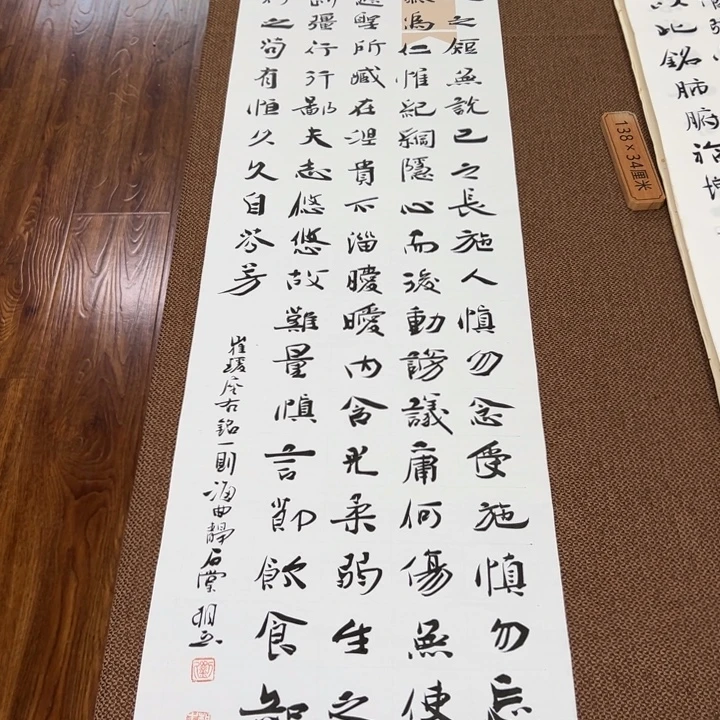 之短無說己之長施人慎勿念受施慎勿忘
為仁惟紀綱隱心而後動謗議庸何傷無使
聖所臧在涅貴不淄曖曖內含光柔弱生之
彊行行鄙夫志悠悠故難量慎言節飲食知
之苟有恒久久自芬芳
崔瑗座右銘一則海曲靜石堂
138×34厘米
以此銘肺腑